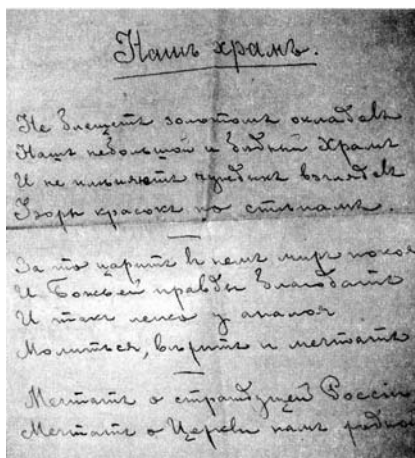 Нашъ храмъ.
Не блещетъ золотомъ окладовъ
Нашъ небольшой и бѣдный Храмъ
И не плѣняютъ чуждыхъ взглядовъ
Узоры красокъ по стѣнамъ.
За то царитъ въ немъ миръ покоя
И Божьей правды благодать
И такъ легко у аналоя
Молиться, вѣрить и мечтать
Мечтать о страждущей Россіи
Мечтать о Церкви намъ родно